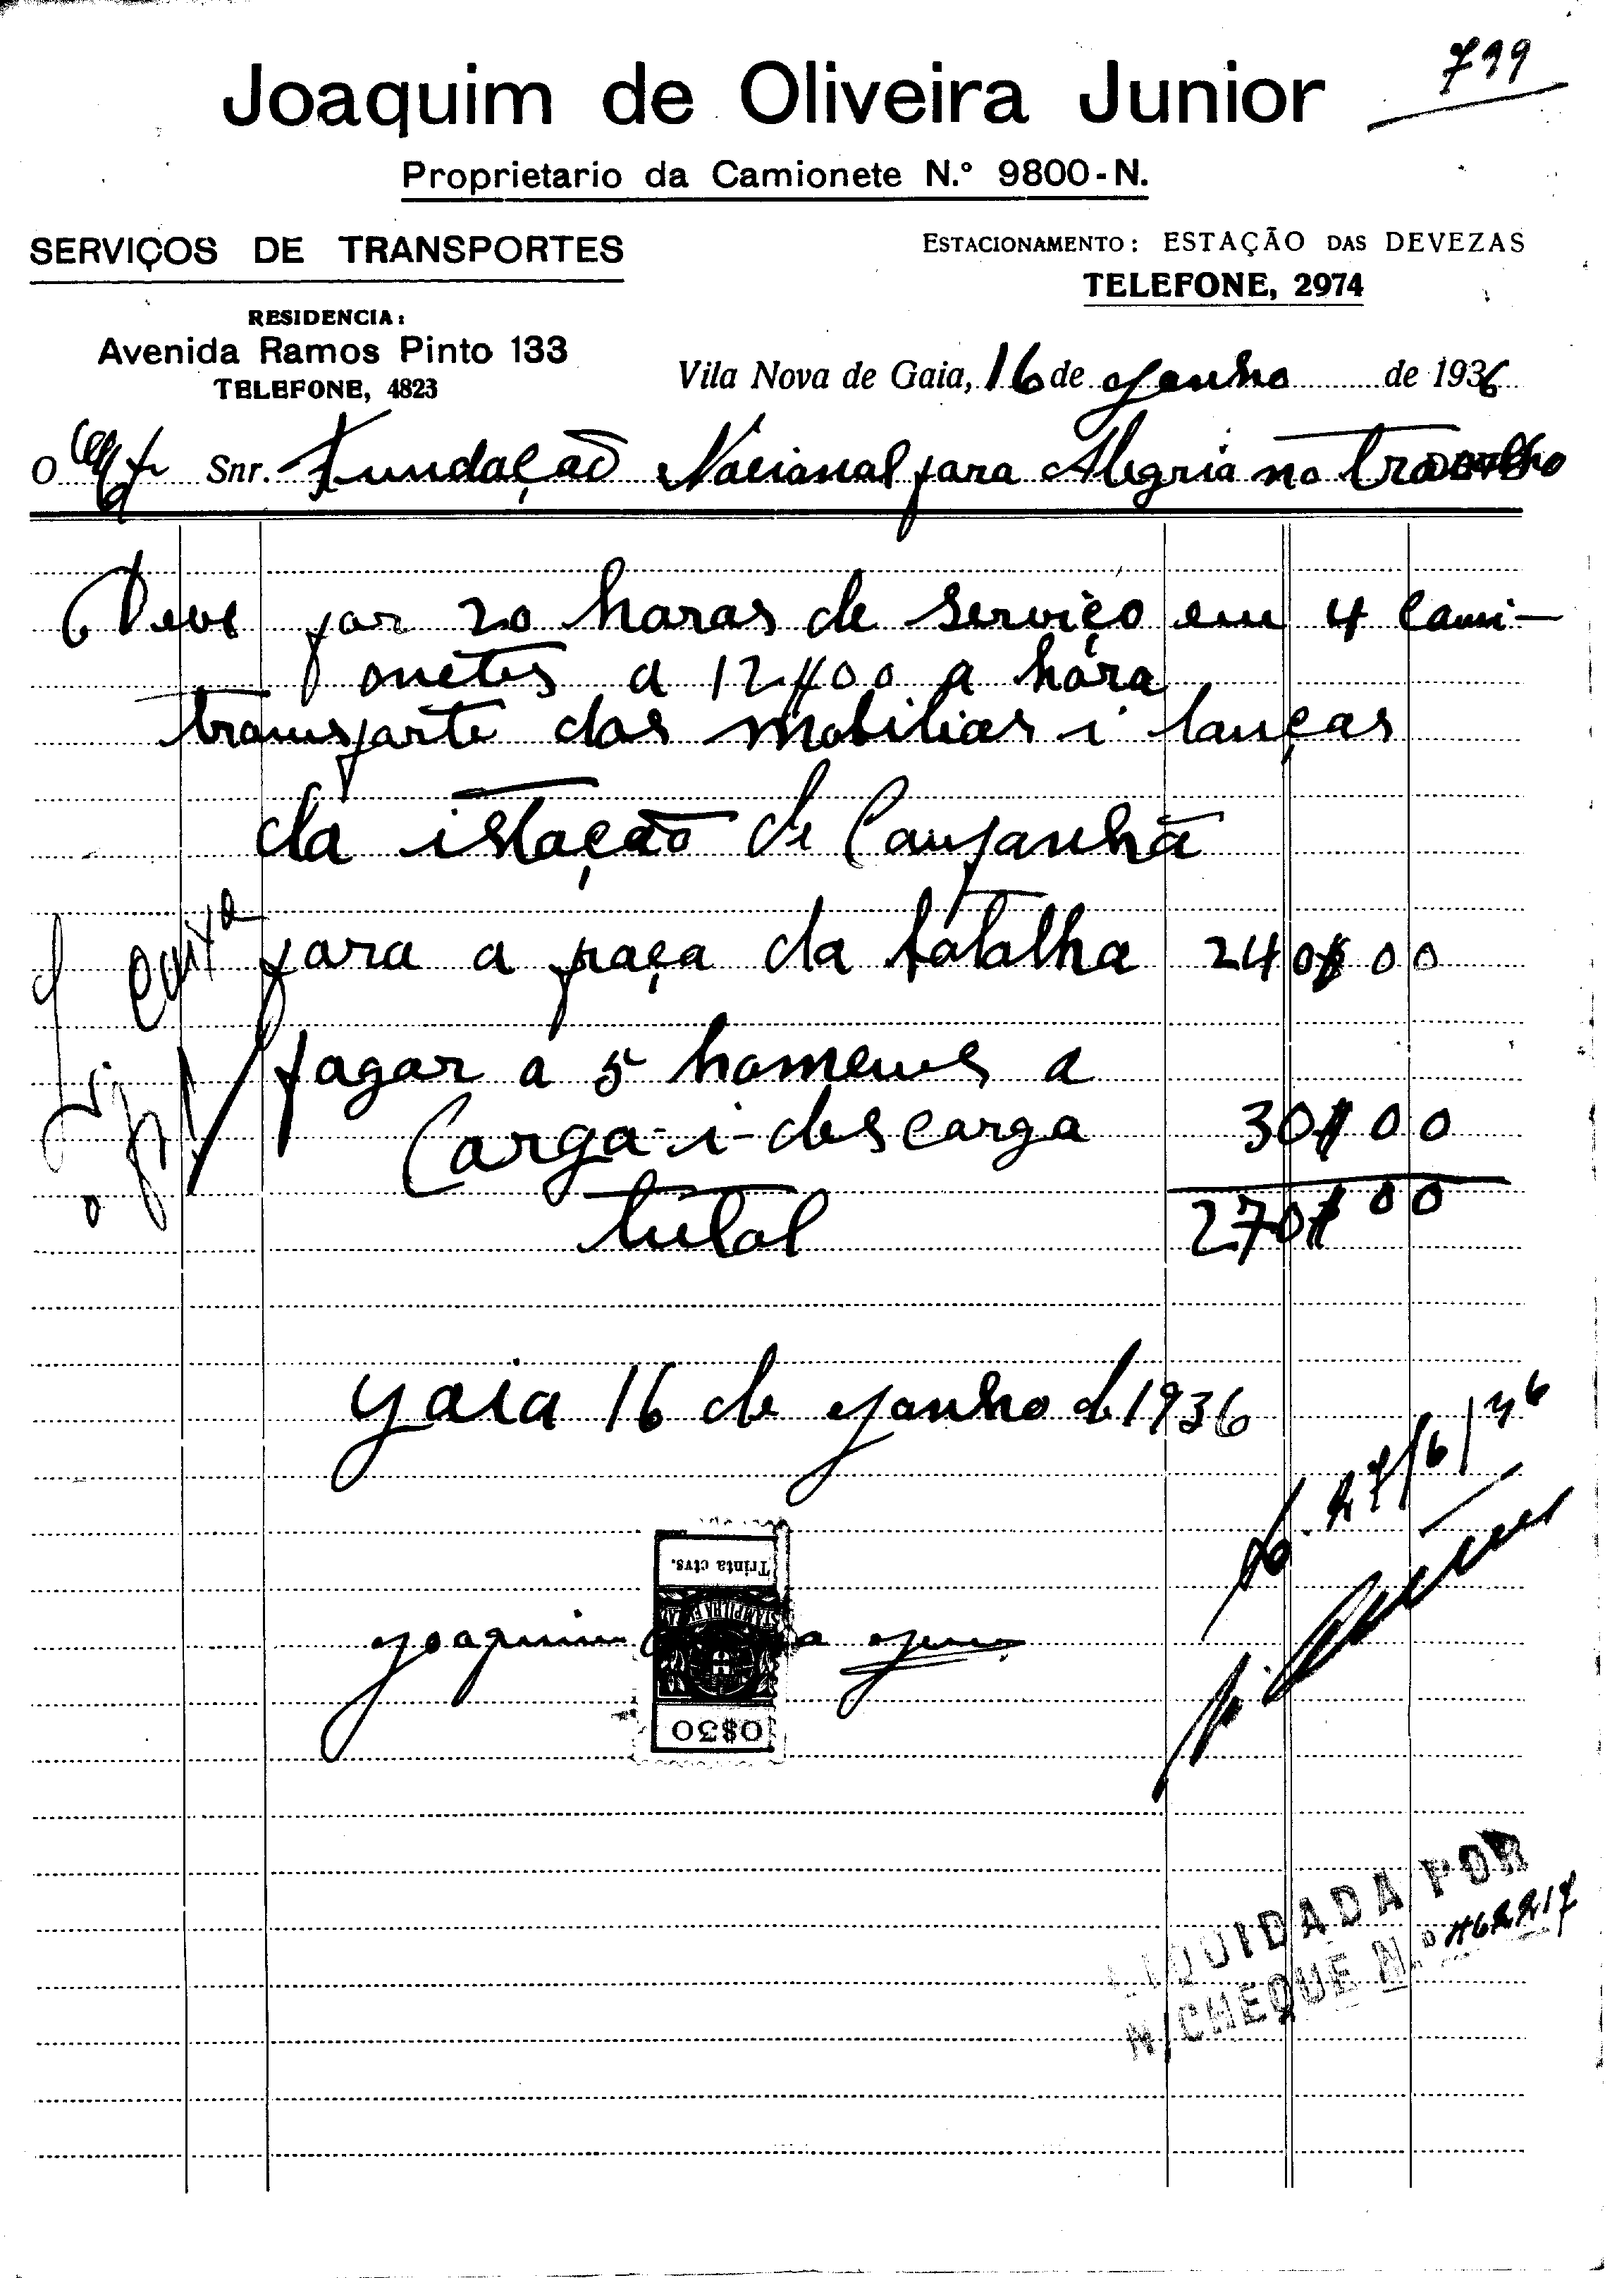 799
Joaquim de Oliveira Junior
Proprietario da Camionete N.º 9800-N.
SERVIÇOS DE TRANSPORTES
ESTACIONAMENTO: ESTAÇÃO DAS DEVEZAS
TELEFONE, 2974
RESIDENCIA:
Avenida Ramos Pinto 133
TELEFONE, 4823
Vila Nova de Gaia, 16 de de 1936
O Snr. Fundação Nacional para Alegria no trabalho
Deve por 20 horas de serviço em 4 cami-
onetes a 12$00 a hóra
transporte das mobilias i lanças
da istação de Campanhã
para a praça da batalha 240$00
pagar a 5 homens a
Carga-i-descarga 30$00
tutal 270$00
Gaia 16 de de 1936
27/6/36
Trinta ctvs.
ESTAMPILHA
Joaquim
0$30
LIQUIDADA POR
N/CHEQUE N.º